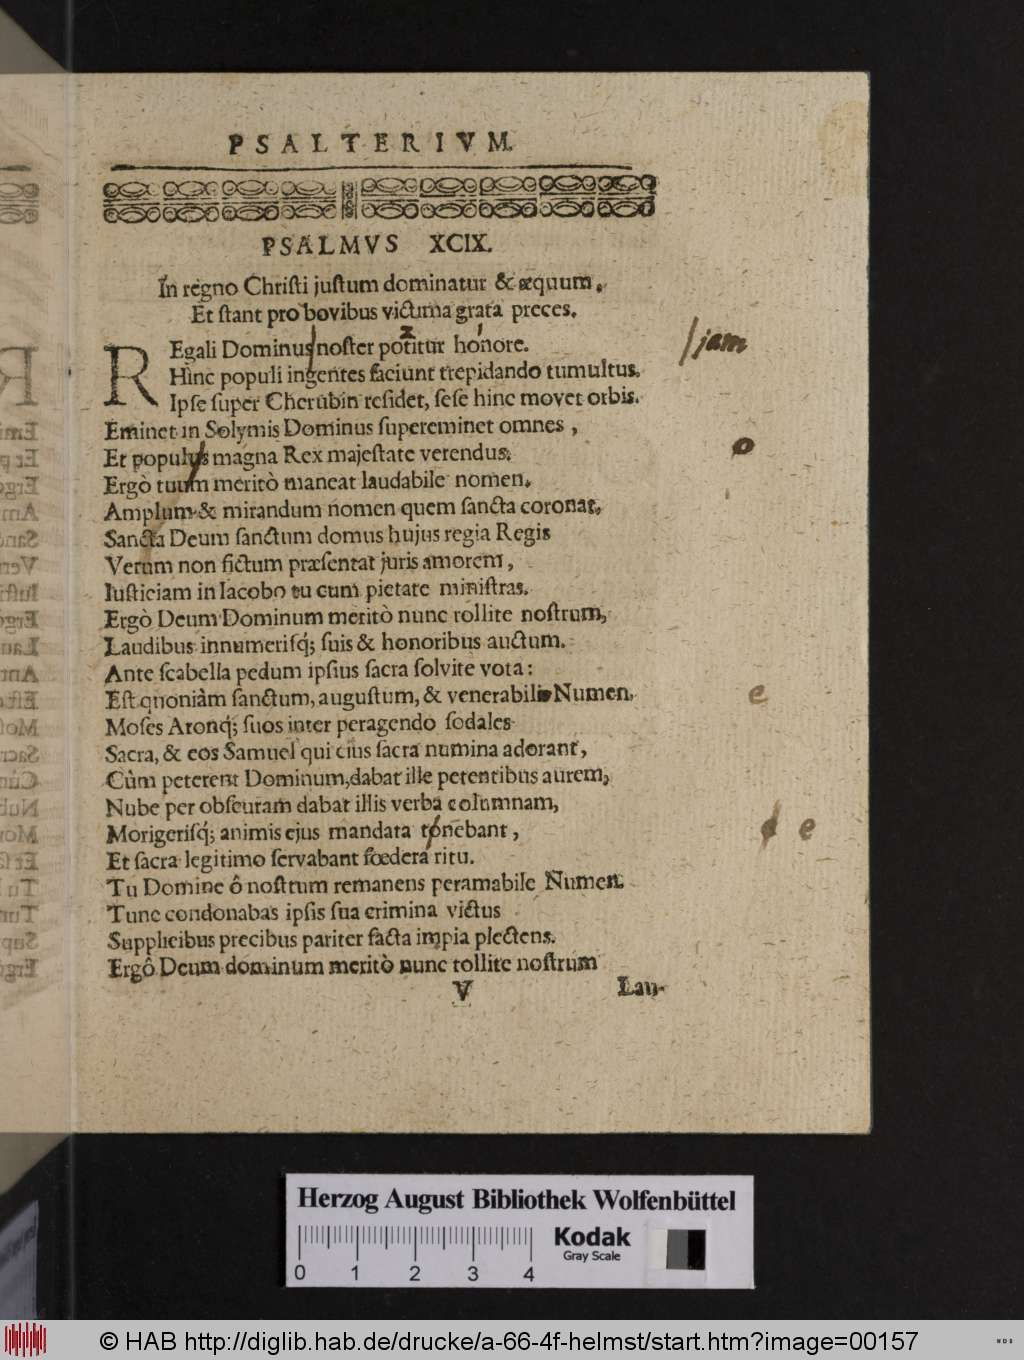 PSALTERIVM.
PSALMVS XCIX.
In regno Chriſti juſtum dominatur & æquum,
Et ſtant pro bovibus victima grata preces.
REgali Dominus noſter potitur honore. |jam
2 1
Hinc populi ingentes faciunt trepidando tumultus.
Ipſe ſuper Cherubin reſidet, ſeſe hinc movet orbis.
Eminet in Solymis Dominus ſupereminet omnes,
Et populus magna Rex majeſtate verendus. o
Ergò tuum meritò maneat laudabile nomen.
Amplum & mirandum nomen quem ſancta coronat,
Sancta Deum ſanctum domus hujus regia Regis
Verum non fictum præſentat juris amorem,
Iuſticiam in Iacobo tu cum pietate miniſtras.
Ergò Deum Dominum meritò nunc tollite noſtrum,
Laudibus innumeriſq́; ſuis & honoribus auctum.
Ante ſcabella pedum ipſius ſacra ſolvite vota:
Eſt quoniàm ſanctum, auguſtum, & venerabile Numen. e
Moſes Aronq́; ſuos inter peragendo ſodales
Sacra, & eos Samuel qui eius ſacra numina adorant,
Cùm peterent Dominum, dabat ille petentibus aurem,
Nube per obſcuram dabat illis verba columnam,
Morigeriſq́; animis ejus mandata tonebant, e
Et ſacra legitimo ſervabant fœdera ritu.
Tu Domine ô noſtrum remanens peramabile Numen.
Tunc condonabas ipſis ſua crimina victus
Supplicibus precibus pariter facta impia plectens.
Ergô Deum dominum meritò nunc tollite noſtrum
V Lau-
Herzog August Bibliothek Wolfenbüttel
Kodak
Gray Scale
0 1 2 3 4
© HAB http://diglib.hab.de/drucke/a-66-4f-helmst/start.htm?image=00157